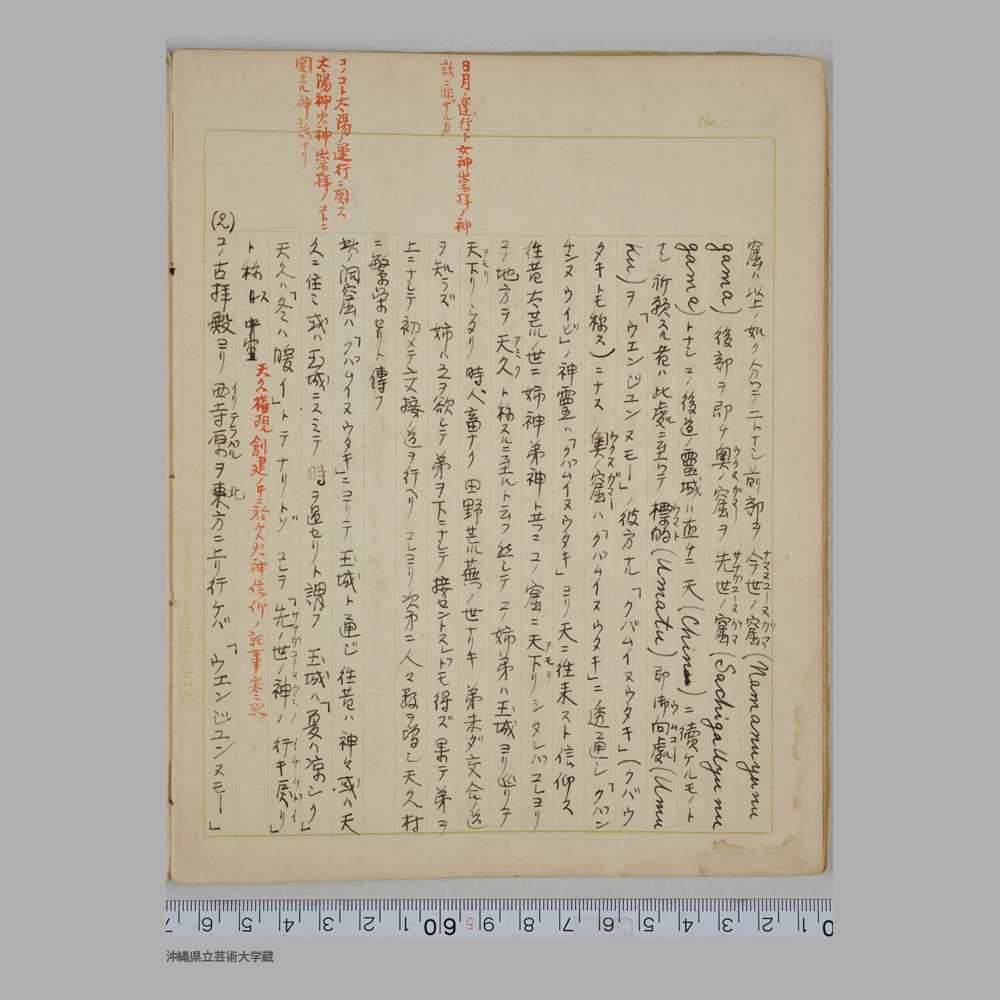 No.
日月ノ運行ト女神崇拝ノ神
話ニ非ザルカ
コノコト太陽ノ運行ニ関ス
太陽神火神崇拝ノコトニ
関スル神話ナリ
窟ハ以上ノ如ク分レテ二トナシ前部ヲ 今世ノ窟(Namanuyunu
gama) 後部ヲ即チ奥ノ窟ヲ 先世ノ窟(Sachigauyunu
gama)トナシコノ後道ノ霊域ハ直チニ天(Chin)ニ續ケルモノト
ナシ祈願スル者ハ此處ニ至リテ標的(Umatu)即御向處(Umu
Ku)ヲ「ウエンジュンヌモー」ノ彼方ナル「クバムイヌウタキ」(クバウ
タキトモ称ス)ニナス 奥ノ窟ハ「クバムイヌウタキ」ニ透通シ「クバン
チンヌウイビ」ノ神霊ハ「クバムイヌウタキ」ヨリ天ニ往来スト信仰ス
往昔太荒ノ世ニ姉神弟神ト共ニコノ窟ニ天下リシタレバコレヨリ
コノ地方ヲ天久ト称スルニ至ルト云フ然シテコノ姉弟ハ玉城ヨリ巡リテ
天下リシタリ 時人畜ナク 田野荒蕪ノ世ナリキ 弟未ダ交合ノ道
ヲ知ラズ 姉ハ之ヲ欲シテ弟ヲ下ニナシテ接セントスレトモ得ズ 果テ弟ヲ
上ニナシテ初メテ交接ノ道ヲ行ヘリ コレヨリ次第ニ人々数ヲ増シ天久村
ニ繁栄セリト傳フ
此ノ洞窟ハ「クバムイヌウタキ」ニヨリテ 玉城ト通ジ 往昔ハ神々或ハ天
久ニ住ミ或ハ玉城ニスミテ 時ヲ過セリト謂フ 玉城ハ「夏ハ涼シク」
天久ハ「冬ハ暖イ」トテナリトゾ コレヲ「先ノ世ノ神ノ行キ戻リ」
ト称ス
天久権現創建ノ年ニ於ケル火神信仰ノ記事参照
(2)
コノ古拝殿ヨリ 西寺原ヲ東北方ニ上リ行ケバ 「ウエンジュンヌモー」
7 6 5 4 3 2 1 60 5 9 8 7 6 5 4 3 2 1 0
沖縄県立芸術大学蔵